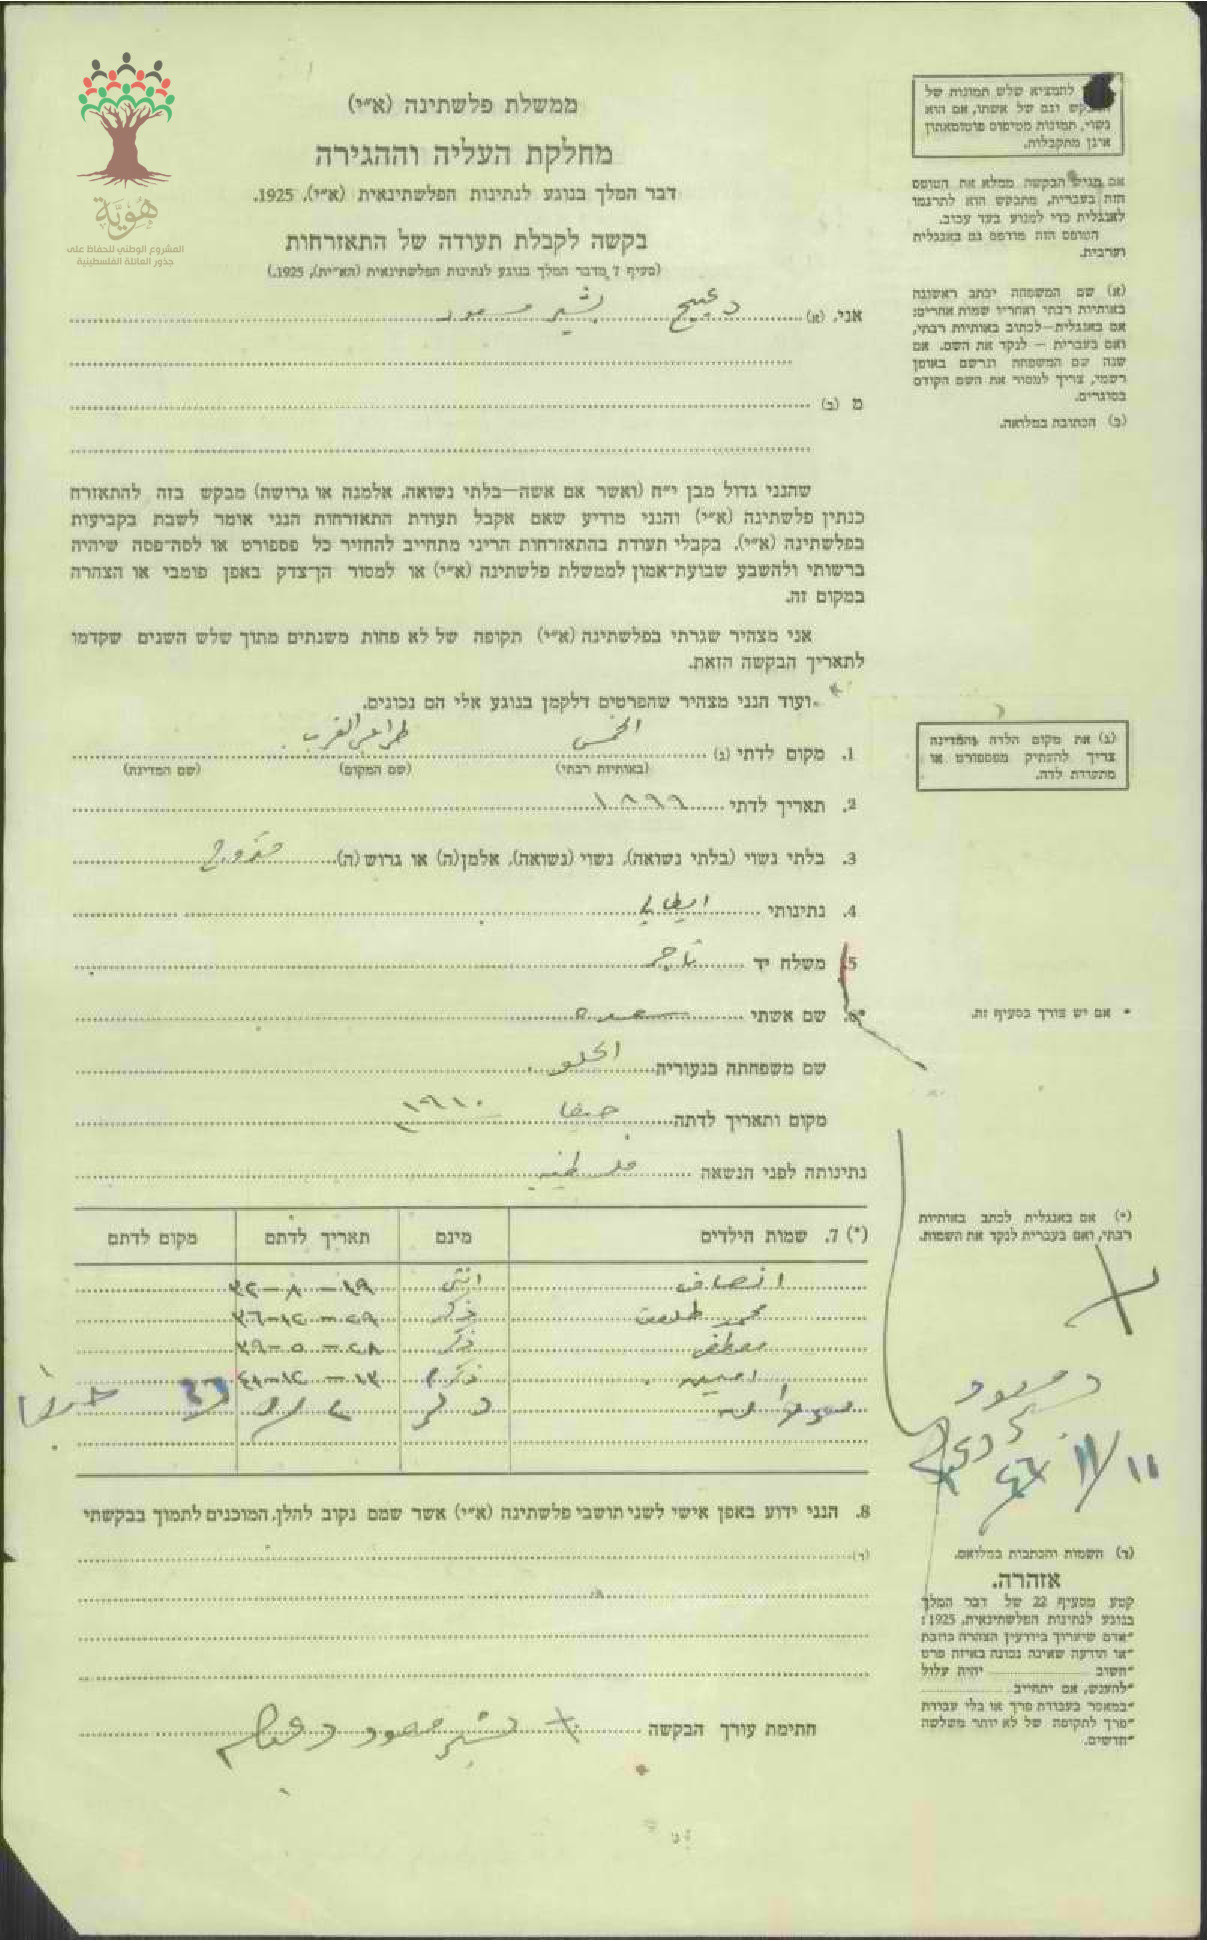 هُوِيَّة
المشروع الوطني للحفاظ على
جذور العائلة الفلسطينية
ממשלת פלשתינה (א״י)
מחלקת העליה וההגירה
דבר המלך בנוגע לנתינות הפלשתינאית (א״י), 1925.
בקשה לקבלת תעודה של התאזרחות
(סעיף 7 מדבר המלך בנוגע לנתינות הפלשתינאית (הא״ית), 1925.)
לחמציא שלש תמונות של
המבקש וגם של אשתו, אם הוא
נשוי, תמונות מטיפוס פוטומאתון
אינן מתקבלות.
אם מגיש הבקשה ממלא את הטופס
הזה בעברית, מתבקש הוא לתרגמו
לאנגלית כדי למנוע בעד עכוב.
הטופס הזה מודפס גם באנגלית
וערבית.
(א) שם המשפחה יכתב ראשונה
באותיות רבתי ואחריו שמות אחרים:
אם באנגלית—לכתוב באותיות רבתי,
ואם בעברית – לנקד את השם. אם
שנה שם המשפחה ונרשם באופן
רשמי, צריך למסור את השם הקודם
בסוגרים.
(ב) הכתובת במלואה.
אני, (א) دعيج بشير مسعود
מ (ב)
שהנני גדול מבן י״ח (ואשר אם אשה—בלתי נשואה, אלמנה או גרושה) מבקש בזה להתאזרח
כנתין פלשתינה (א״י) והנני מודיע שאם אקבל תעודת התאזרחות הנני אומר לשבת בקביעות
בפלשתינה (א״י). בקבלי תעודת בהתאזרחות הריני מתחייב להחזיר כל פספורט או לסה־פסה שיהיה
ברשותי ולהשבע שבועת־אמון לממשלת פלשתינה (א״י) או למסור הן־צדק באפן פומבי או הצהרה
במקום זה.
אני מצהיר שגרתי בפלשתינה (א״י) תקופה של לא פחות משנתים מתוך שלש השנים שקדמו
לתאריך הבקשה הזאת.
ועוד הנני מצהיר שהפרטים דלקמן בנוגע אלי הם נכונים.
1. מקום לדתי (ג) الخمس طرابلس الغرب
(באותיות רבתי) (שם המקום) (שם המדינה)
(ג) את מקום הלדה והמדינה
צריך להעתיק מפספורט או
מתעודת לדה.
2. תאריך לדתי ١٨٩٩
3. בלתי נשוי (בלתי נשואה), נשוי (נשואה), אלמן(ה) או גרוש (ה) متزوج
4. נתינותי ايطاليا
5. משלח יד تاجر
6. שם אשתי سعده
* אם יש צורך בסעיף זה.
שם משפחתה בנעוריה الحلو
מקום ותאריך לדתה حيفا ١٩١٠
נתינותה לפני הנשאה فلسطينيه
(*) אם באנגלית לכתב באותיות
רבתי, ואם בעברית לנקד את השמות.
(*) 7. שמות הילדים מינם תאריך לדתם מקום לדתם
انصاف انثى ١٩-٨-٣٤
محمد طلعت ذكر ٢٩-١٢-٣٦
مصطفى ذكر ٢٨-٥-٣٩
امين ذكر ١٣-١٢-٤١
ذكر حيفا
د مسعود
11/11
8. הנני ידוע באפן אישי לשני תושבי פלשתינה (א״י) אשר שמם נקוב להלן, המוכנים לתמוך בבקשתי
(ד)
(ד) השמות והכתבות במלואם.
אזהרה.
קטע מסעיף 22 של דבר המלך
בנוגע לנתינות הפלשתינאית, 1925:
"אדם שיערוך ביודעין הצהרה כוזבת
"או הודעה שאינה נכונה באיזה פרט
"חשוב ........ יהיה עלול
"להענש, אם יתחייב ........
"במאסר בעבודת פרך או בלי עבודת
"פרך לתקופה של לא יותר משלשה
"חדשים.
חתימת עורך הבקשה بشير مسعود دعيج